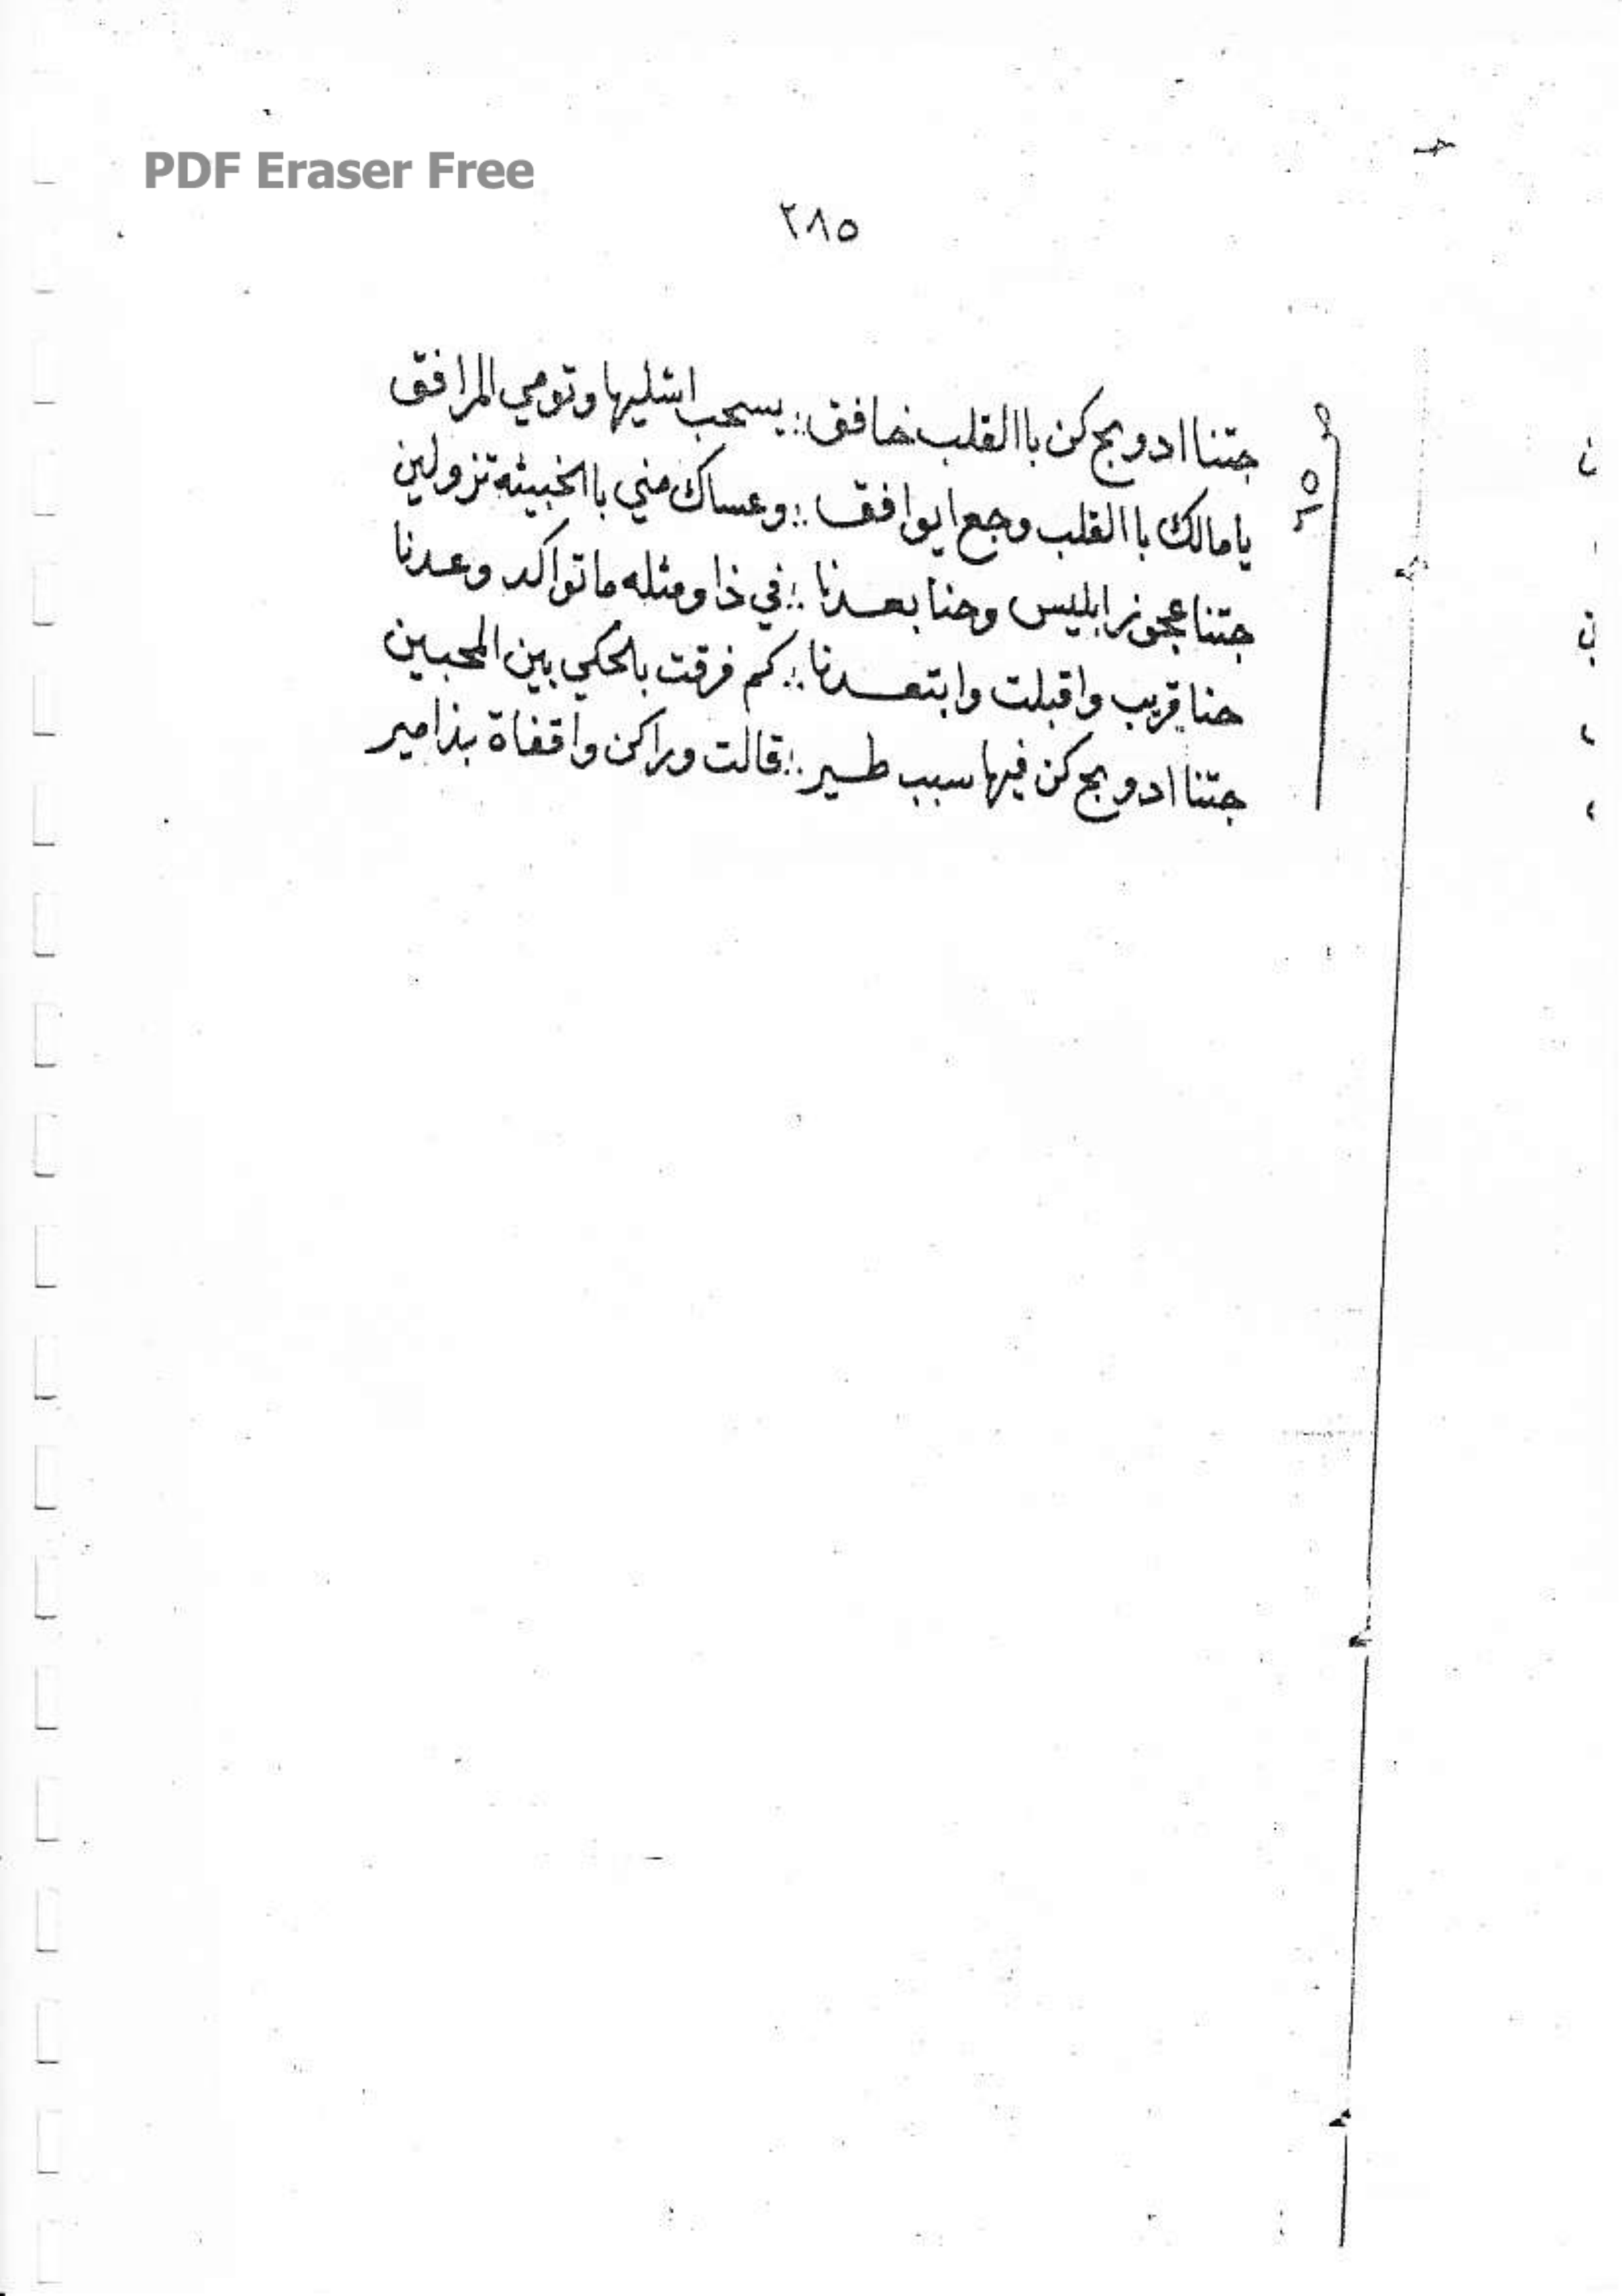 PDF Eraser Free
٢٨٥
جتنا ادوبج كن باالقلب خافق :: يسحب اشليها وتومي المرافق
يا مالك باالقلب وجع ايوافق :: وعساك مني باالخبيثه تزولين
جتنا عجوز ابليس وحنا بعدنا :: في ذا ومثله ما تواكد وعدنا
حنا قريب واقبلت وابتعدنا :: كم فرقت بالحكي بين المحبين
جتنا ادوبج كن فيها سبب طير :: قالت وراكن واقفاة بذا امير